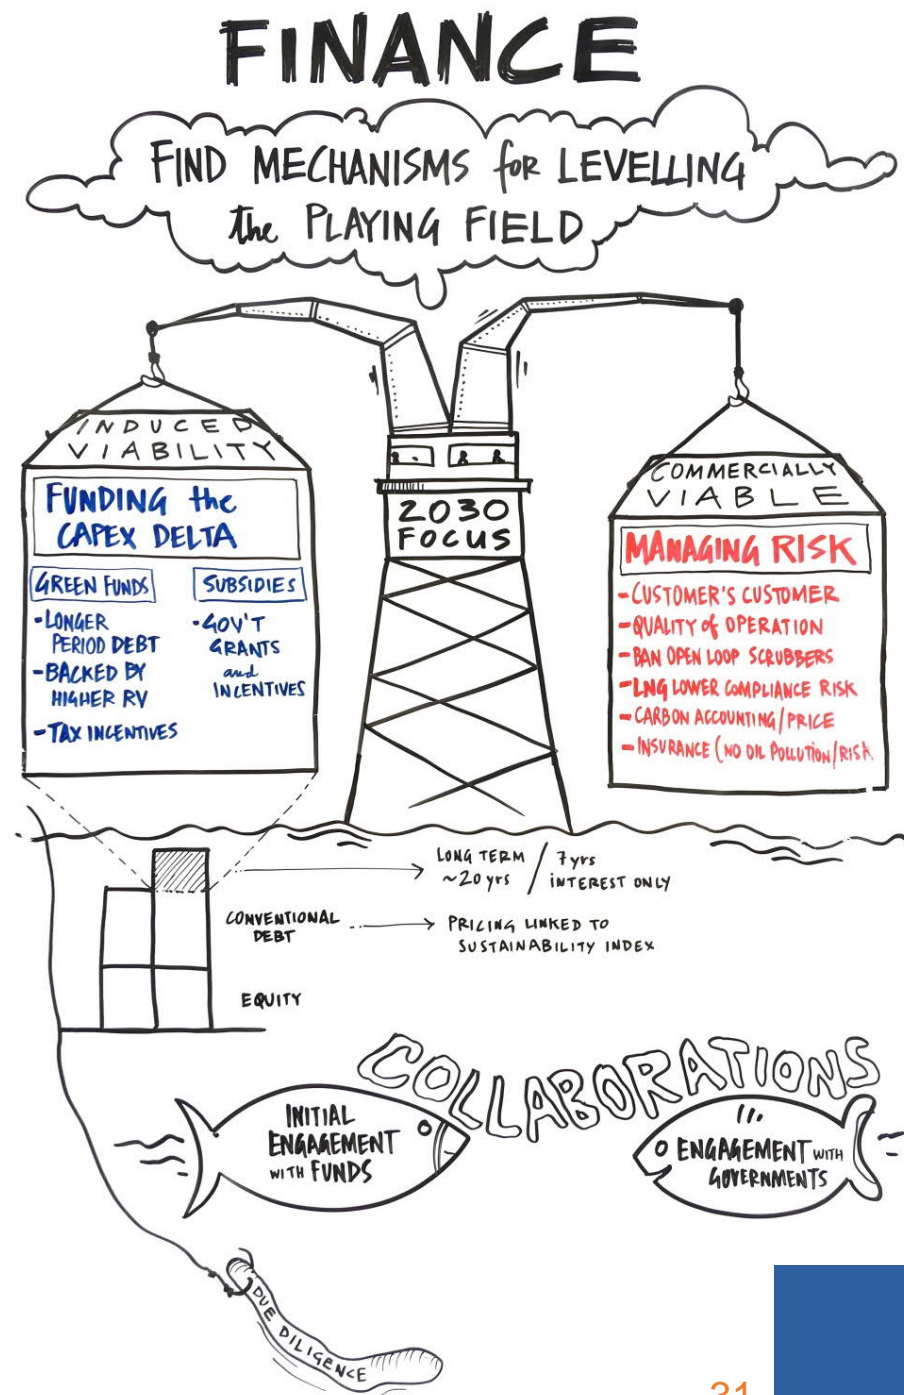 FINANCE
FIND MECHANISMS for LEVELLING
the PLAYING FIELD
INDUCED
VIABILITY
FUNDING the
CAPEX DELTA
GREEN FUNDS
- LONGER
PERIOD DEBT
- BACKED BY
HIGHER RV
- TAX INCENTIVES
SUBSIDIES
- GOV'T
GRANTS
and
INCENTIVES
2030
FOCUS
COMMERCIALLY
VIABLE
MANAGING RISK
- CUSTOMER'S CUSTOMER
- QUALITY of OPERATION
- BAN OPEN LOOP SCRUBBERS
- LNG LOWER COMPLIANCE RISK
- CARBON ACCOUNTING/PRICE
- INSURANCE (NO OIL POLLUTION/RISK
LONG TERM / 7 yrs
~20 yrs / INTEREST ONLY
CONVENTIONAL
DEBT
PRICING LINKED TO
SUSTAINABILITY INDEX
EQUITY
COLLABORATIONS
INITIAL
ENGAGEMENT
WITH FUNDS
ENGAGEMENT WITH
GOVERNMENTS
DUE DILIGENCE
31